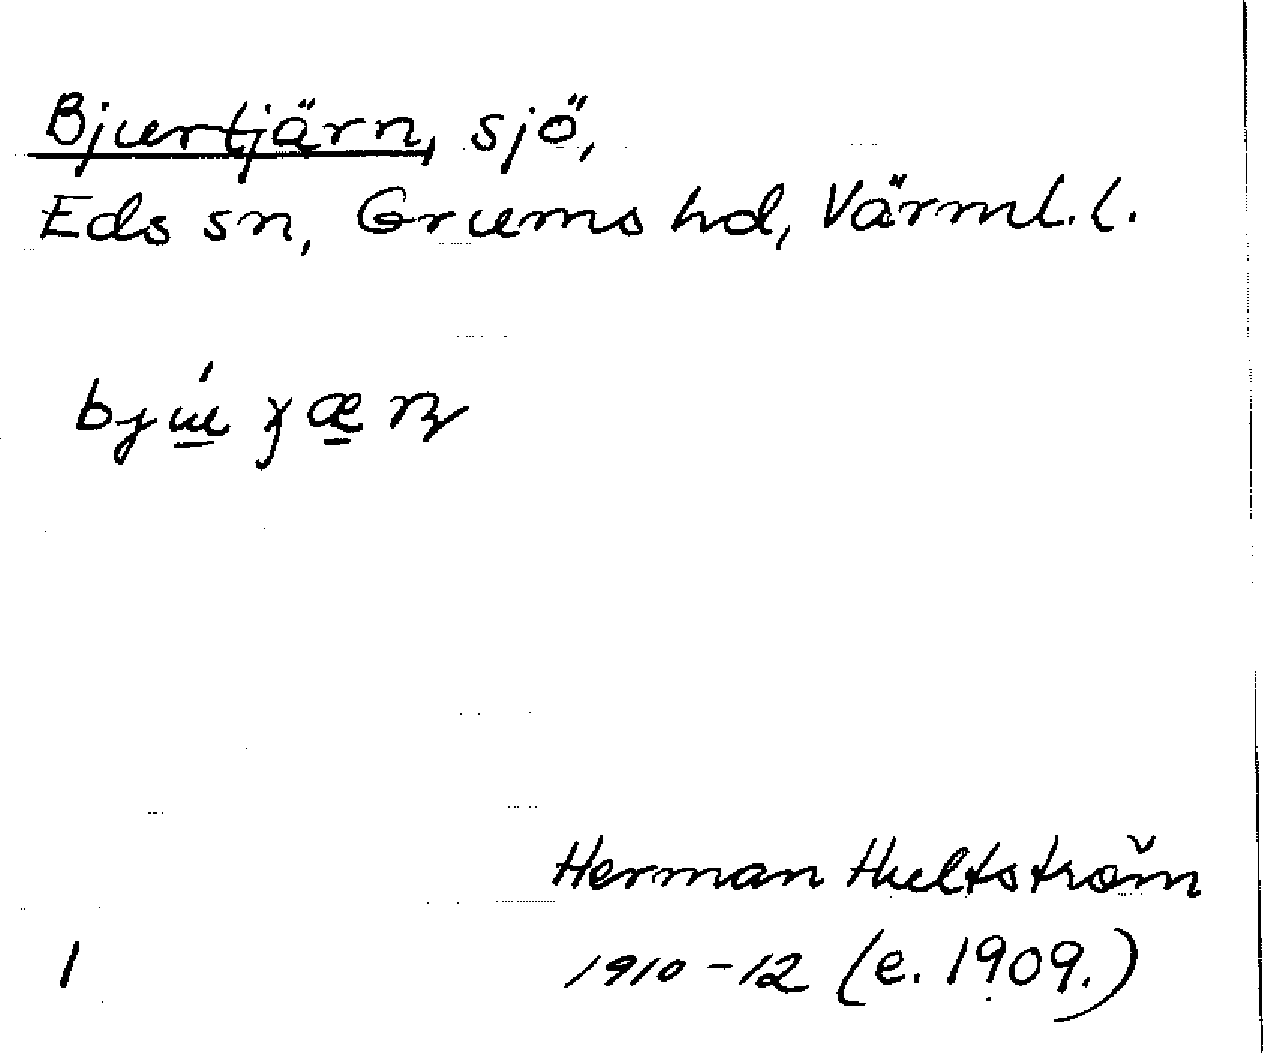 Bjurtjärn, sjö,
Eds sn, Grums hd, Värml. l.
Herman Hultström
1 1910-12 (e. 1909.)